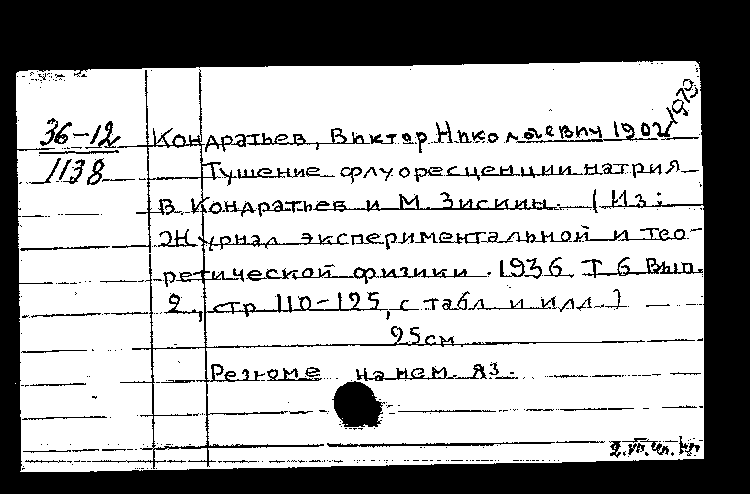 36-12
1138
Кондратьев, Виктор Николаевич 1902-1979
Тушение флуоресценции натрия
В. Кондратьев и М. Зискин. (Из:
Журнал экспериментальной и тео-
ретической физики. 1936. Т 6 Вып.
2., стр 110-125, с табл и илл.)
25см
Резюме на нем. яз.